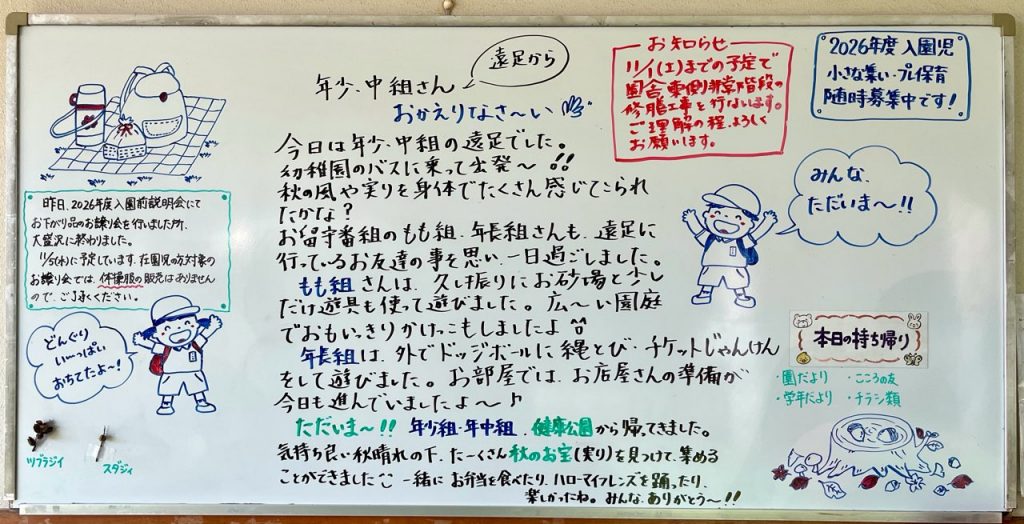 遠足から
年少、中組さん
おかえりなさ～い
今日は年少、中組の遠足でした。
幼稚園のバスに乗って出発～!!
秋の風や実りを身体でたくさん感じてこられ
たかな?
お留守番組のもも組、年長組さんも、遠足に
行っているお友達の事を思い、一日過ごしました。
もも組さんは、久し振りにお砂場と少し
だけ遊具も使って遊びました。広～い園庭
でおもいっきりかけっこもしましたよ
年長組は、外でドッジボールに縄とび・チケットじゃんけん
をして遊びました。お部屋では、お店屋さんの準備が
今日も進んでいましたよ～♪
ただいま～!! 年少組・年中組、健康公園から帰ってきました。
気持ち良い秋晴れの下、たーくさん秋のお宝(実り)を見つけて、集める
ことができました 一緒にお弁当を食べたり、ハローマイフレンズを踊ったり、
楽しかったね。みんな、ありがとう～!!
お知らせ
11/1(土)までの予定で
園舎東側非常階段の
修膳工事を行ないます。
ご理解の程、よろしく
お願いします。
2026年度 入園児
小さな集い・プレ保育
随時募集中です!
みんな、
ただいま～!!
昨日、2026年度入園前説明会にて
お下がり品のお譲り会を行いました所、
大盛況に終わりました。
11/5(水)に予定しています、在園児の方対象の
お譲り会では、体操服の販売はありません
ので、ご了承ください。
どんぐり
い～っぱい
おちてたよ～!
ツブラジイ
スダジイ
本日の持ち帰り
・園だより ・こころの友
・学年だより ・チラシ類